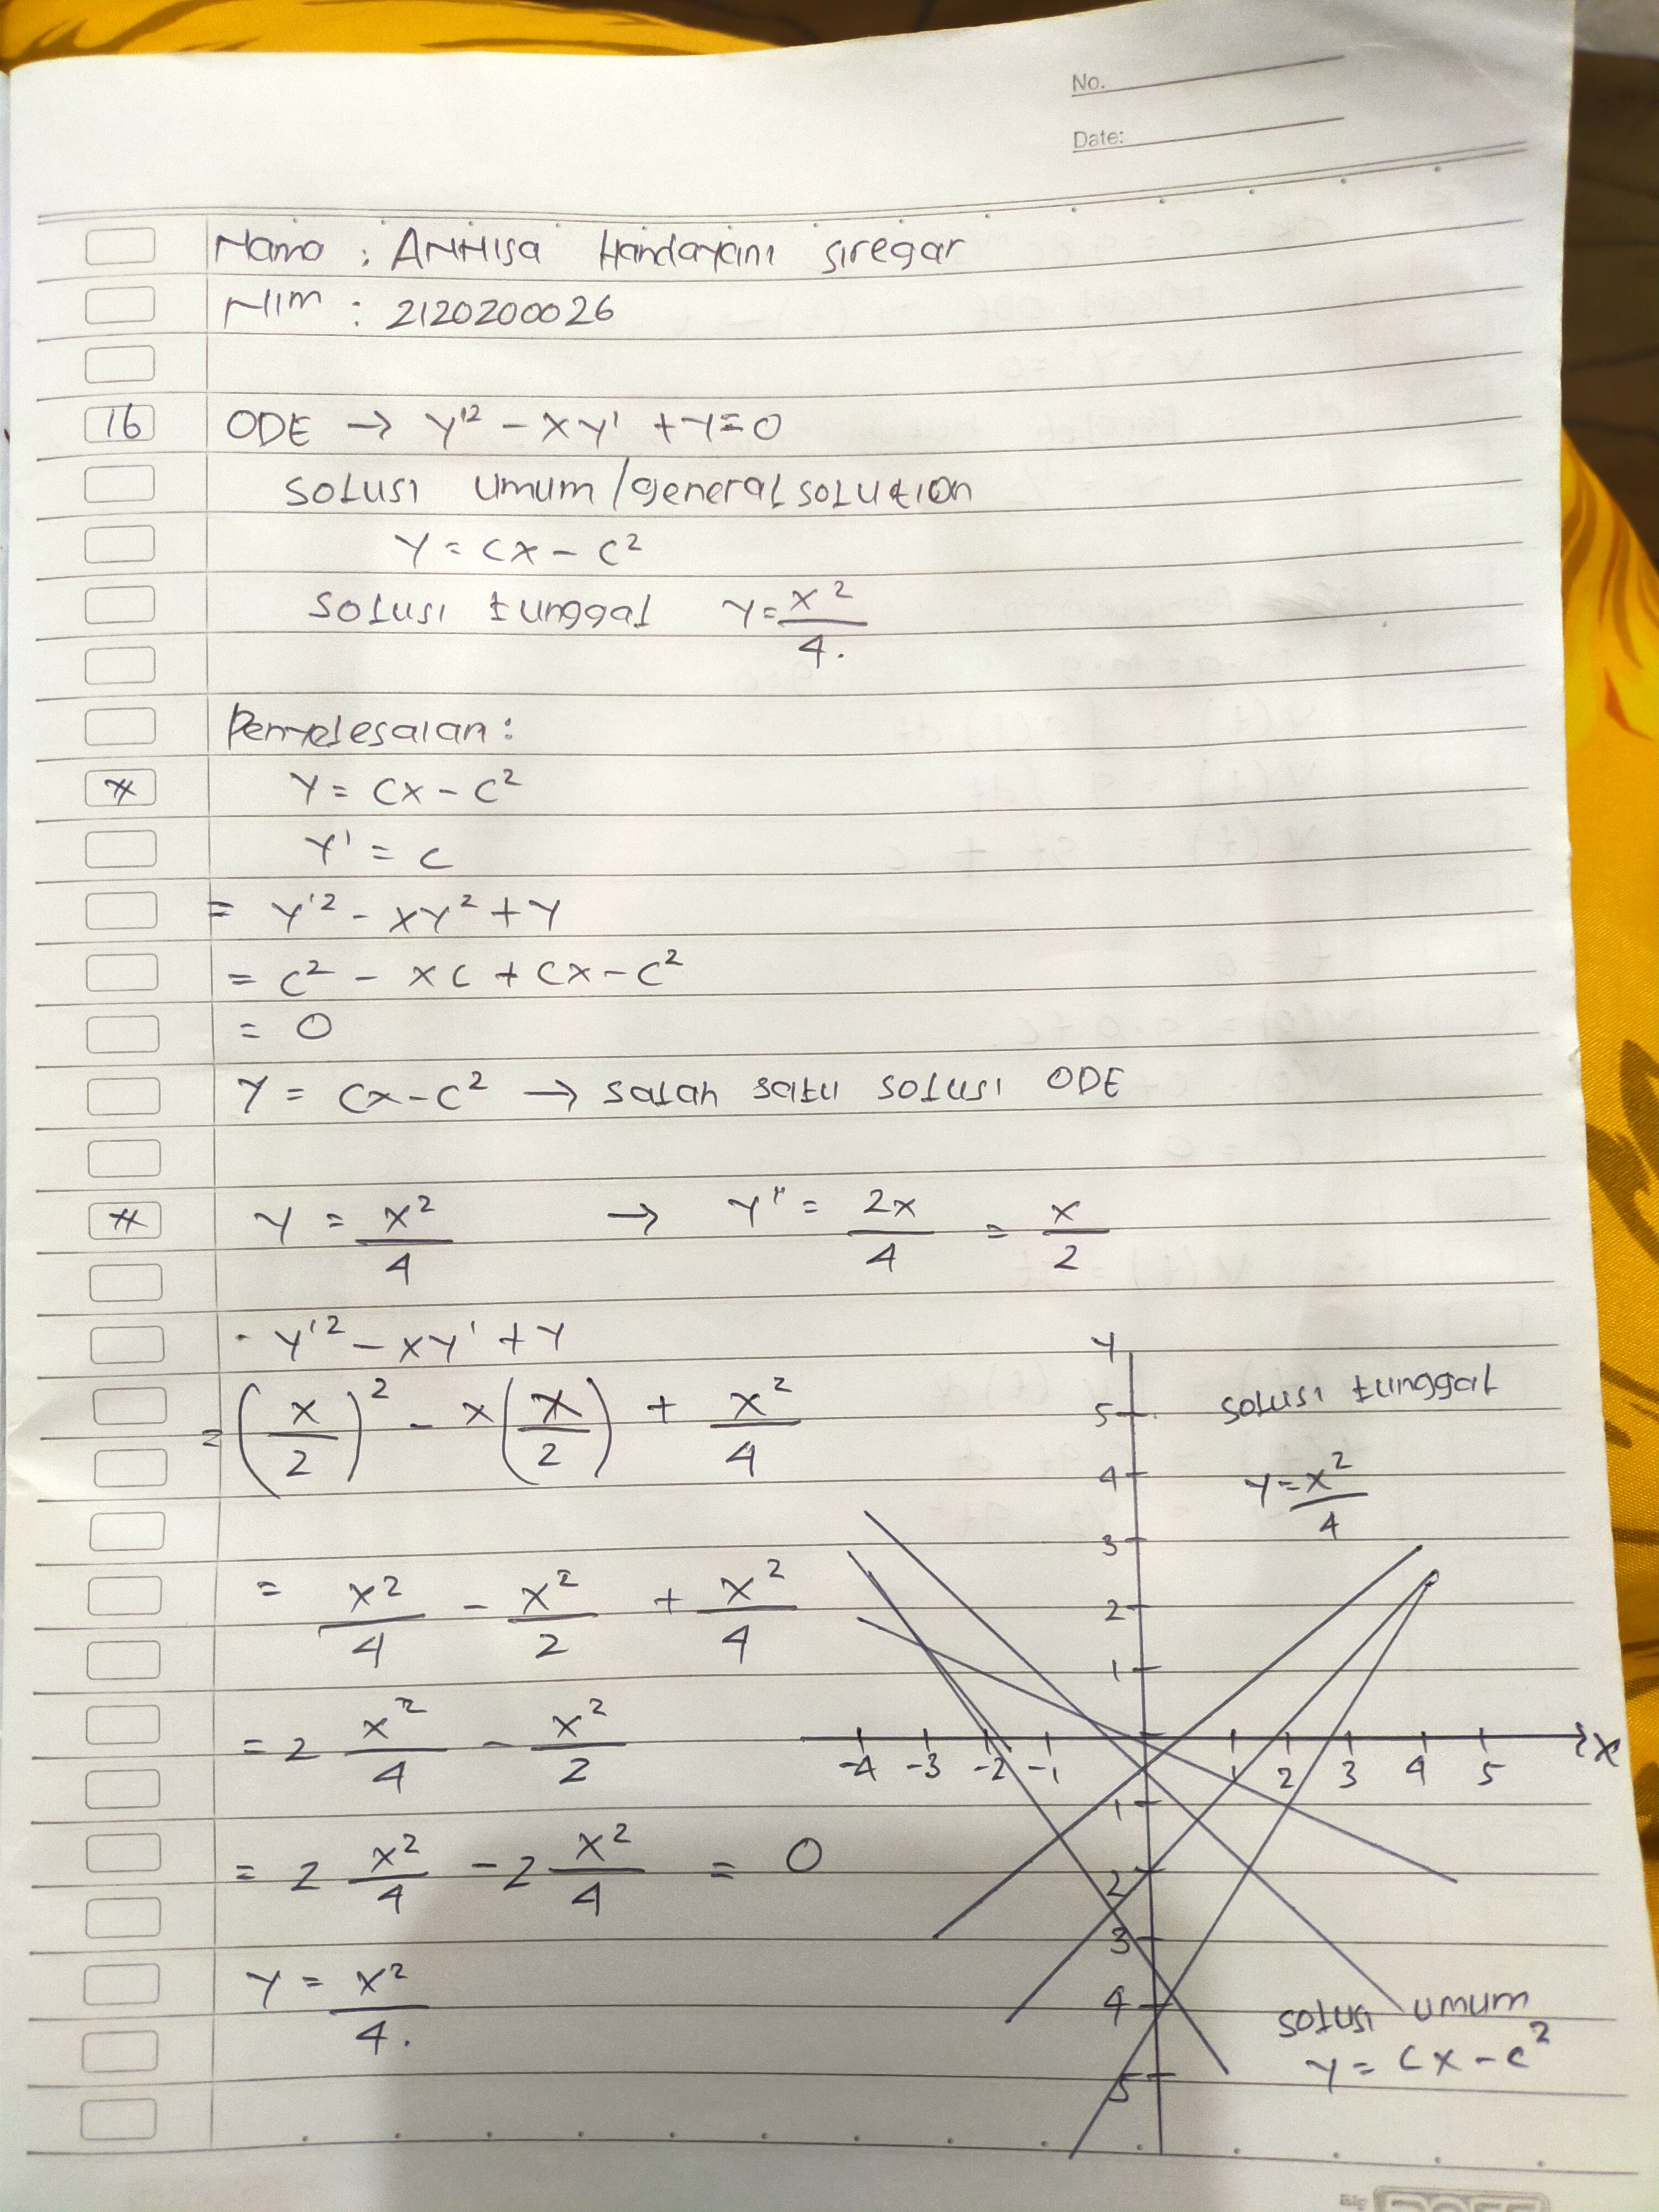 No.
Date:
Nama : Annisa Handayani Siregar
NIM : 2120200026
16 ODE → y'² - xy' + y = 0
Solusi umum / general solution
y = cx - c²
Solusi tunggal y = x²/4.
Penyelesaian :
* y = cx - c²
y' = c
= y'² - xy² + y
= c² - xc + cx - c²
= 0
y = cx - c² → salah satu solusi ODE
* y = x²/4 → y" = 2x/4 = x/2
- y'² - xy' + y
= (x/2)² - x(x/2) + x²/4
= x²/4 - x²/2 + x²/4
= 2 x²/4 - x²/2
= 2 x²/4 - 2 x²/4 = 0
y = x²/4.
y
Solusi tunggal
y = x²/4
5
4
3
2
1
-4 -3 -2 -1 1 2 3 4 5 x
1
2
3
4
5
Solusi umum
y = cx - c²